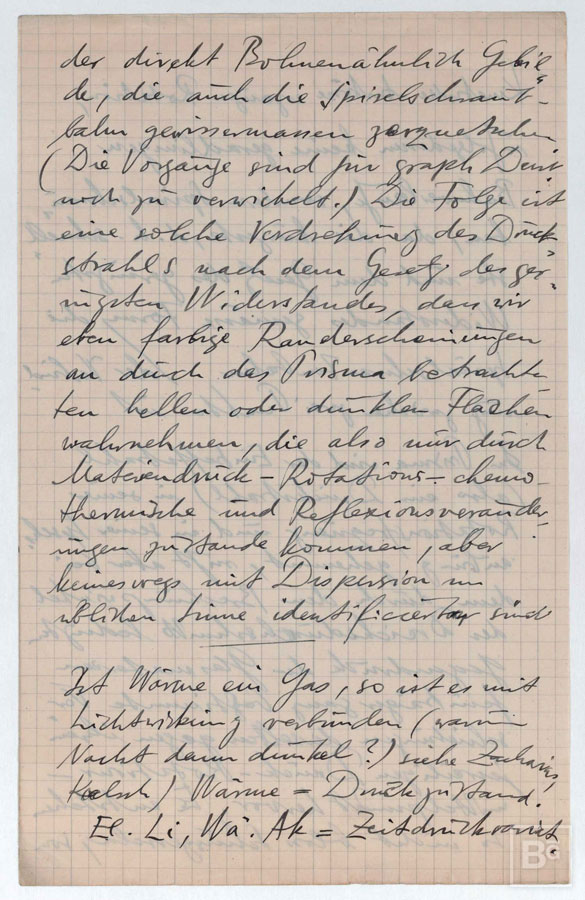 der direkt Bohnenähnlich Gebil-
de, die auch die Spiralschraub-
bahn gewissermassen zerquetschen
(Die Vorgänge sind für graph Darst
noch zu verwickelt.) Die Folge ist
eine solche Verdrehung des Druck-
strahls nach dem Gesetz des ger-
ingsten Widerstandes, dass wir
eben farbige Randerscheinungen
an durch das Prisma betrachte-
ten hellen oder dunklen Flächen
wahrnehmen, die also nur durch
Materiendruck – Rotations – chemo-
thermische und Reflexionsveränder-
ungen zustande kommen, aber
keineswegs mit Dispersion im
üblichen Sinne identifizierbar sind
Ist Wärme ein Gas, so ist es mit
Lichtwirkung verbunden (warum
Nacht dann dunkel?) siehe Zacharias,
Wärme = Druckzustand.
El. Li, Wä. Ak = Zeitdruckvariat.